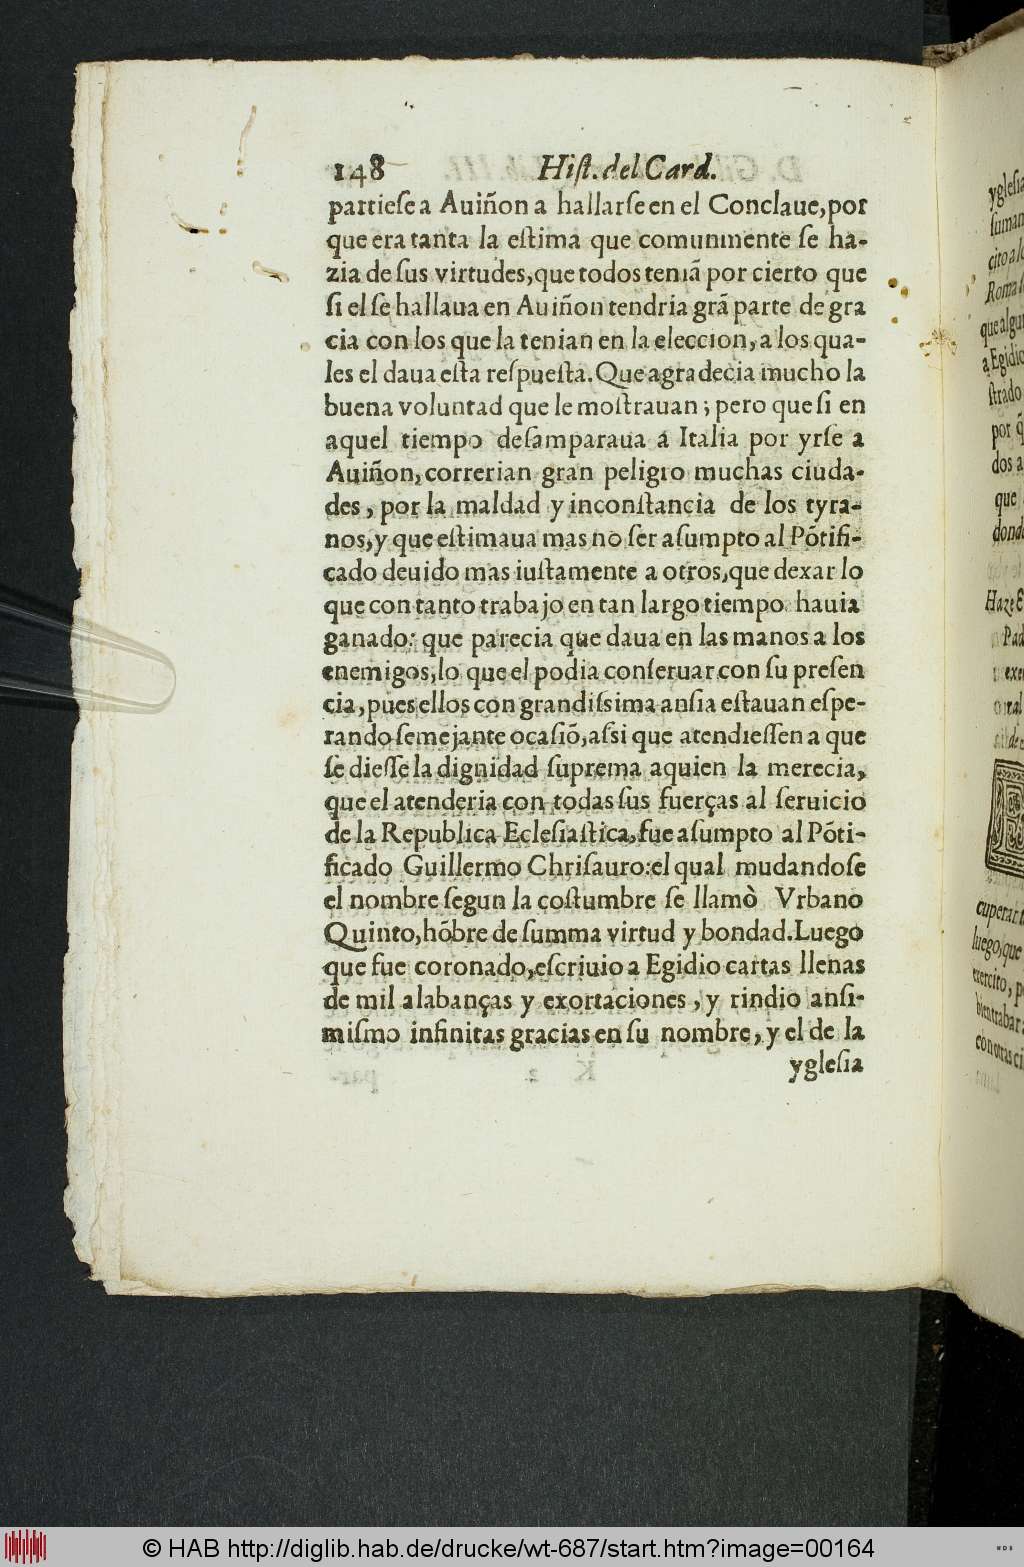 148 Hiſt. del Card.
partieſe a Auiñon a hallarſe en el Conclaue, por
que era tanta la eſtima que comunmente ſe ha-
zia de ſus virtudes, que todos teniã por cierto que
ſi el ſe hallaua en Auiñon tendria grã parte de gra
cia con los que la tenian en la eleccion, a los qua-
les el daua eſta reſpueſta. Que agradecia mucho la
buena voluntad que le moſtrauan; pero que ſi en
aquel tiempo deſamparaua a Italia por yrſe a
Auiñon, correrian gran peligro muchas ciuda-
des, por la maldad y inconſtancia de los tyra-
nos, y que eſtimaua mas no ſer aſumpto al Põtifi-
cado deuido mas iuſtamente a otros, que dexar lo
que con tanto trabajo en tan largo tiempo hauia
ganado: que parecia que daua en las manos a los
enemigos, lo que el podia conſeruar con ſu preſen
cia, pues ellos con grandiſsima anſia eſtauan eſpe-
rando ſemejante ocaſiõ, aſsi que atendieſſen a que
ſe dieſſe la dignidad ſuprema aquien la merecia,
que el atenderia con todas ſus fuerças al ſeruicio
de la Republica Ecleſiaſtica, fue aſumpto al Põti-
ficado Guillermo Chriſauro: el qual mudandoſe
el nombre ſegun la coſtumbre ſe llamò Vrbano
Quinto, hõbre de ſumma virtud y bondad. Luego
que fue coronado, eſcriuio a Egidio cartas llenas
de mil alabanças y exortaciones, y rindio anſi-
miſmo infinitas gracias en ſu nombre, y el de la
ygleſia
ygleſia
ſuman
cito a lo
Roma l
que algu
a Egidio
ſtrado
por q̃
dos a
que
dond
Haze E
Pad
exe
ral
de
cuperar t
luego, que
exercito, p
bien trabar
con otras ci
© HAB http://diglib.hab.de/drucke/wt-687/start.htm?image=00164